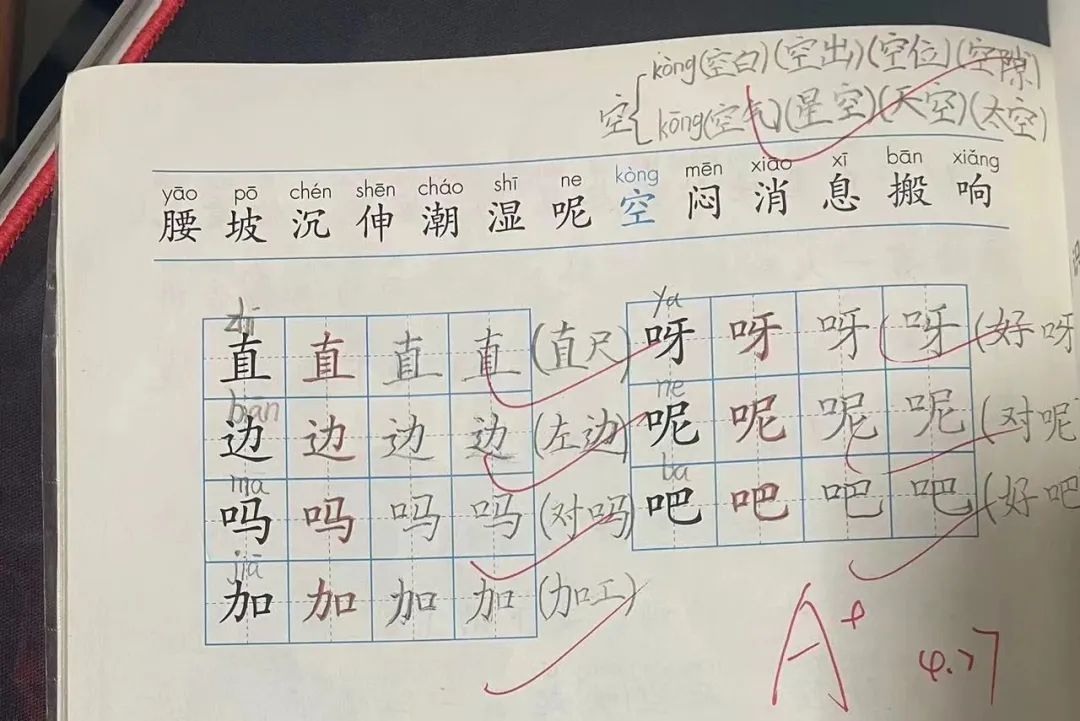 空 kòng(空白)(空出)(空位)(空隙)
kōng(空气)(星空)(天空)(太空)
yāo pō chén shēn cháo shī ne kòng mēn xiāo xī bān xiǎng
腰 坡 沉 伸 潮 湿 呢 空 闷 消 息 搬 响
zhí
直 直 直 直 (直尺)
biān
边 边 边 边 (左边)
ma
吗 吗 吗 吗 (对吗)
jiā
加 加 加 加 (加工)
ya
呀 呀 呀 呀 (好呀
ne
呢 呢 呢 呢 (对呢
ba
吧 吧 吧 吧 (好吧
A+